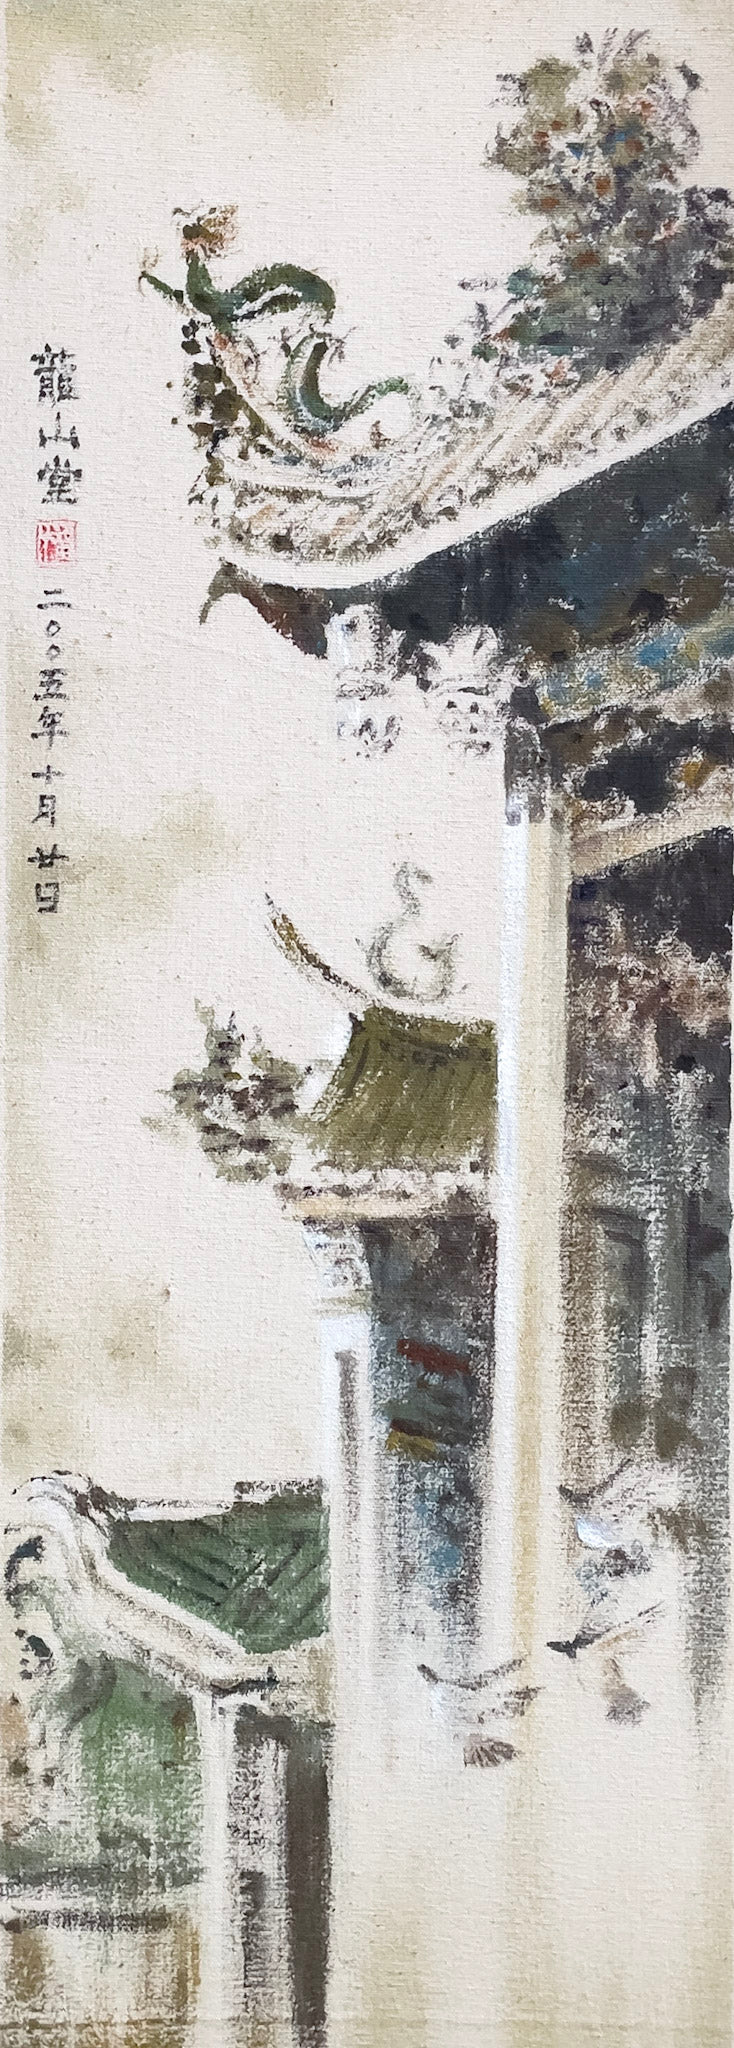 龍山堂
二〇〇五年十月廿日